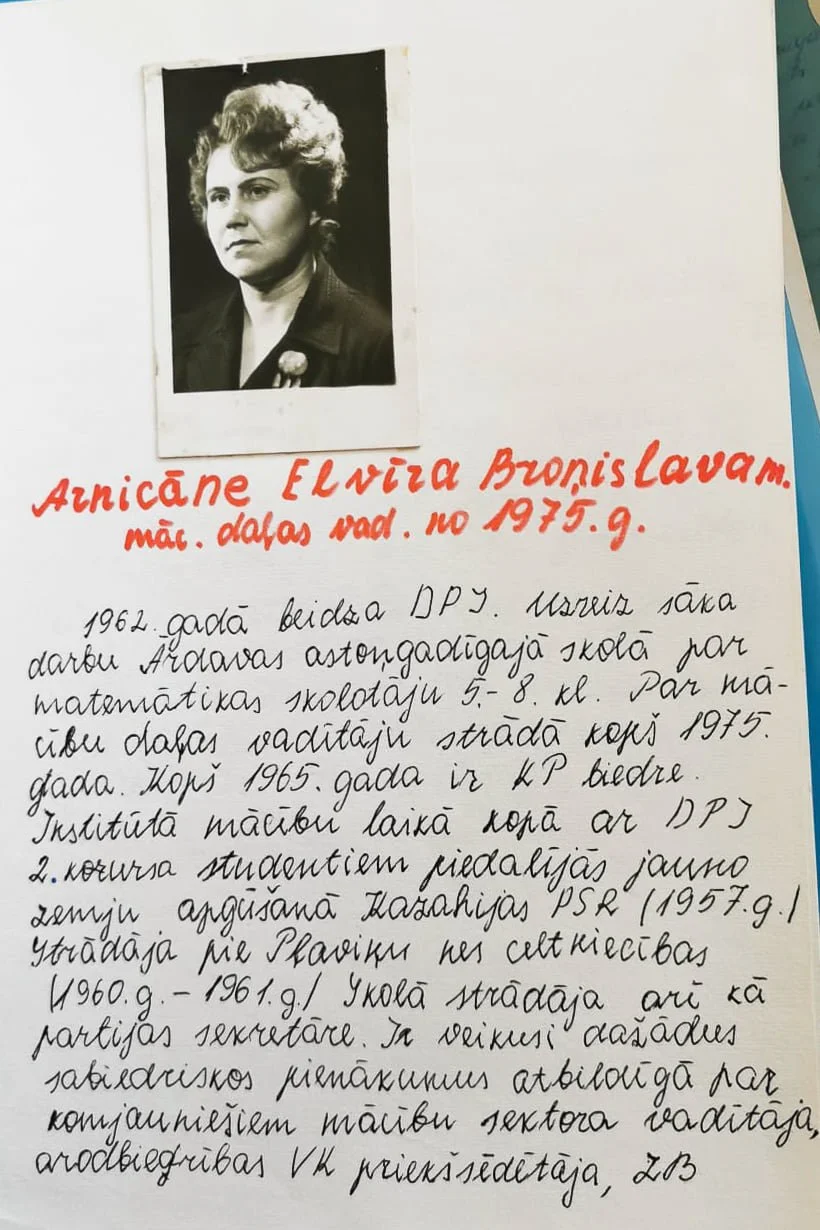 Arnicāne Elvīra Broņislavam.
māc. daļas vad. no 1975. g.
1962. gadā beidza DPI. Uzreiz sāka
darbu Ardavas astoņgadīgajā skolā par
matemātikas skolotāju 5.- 8. kl. Par mā-
cību daļas vadītāju strādā kopš 1975.
gada. Kopš 1965. gada ir KP biedre.
Institūtā mācību laikā kopā ar DPI
2. kursa studentiem piedalījās jauno
zemju apgūšanā Kazahijas PSR (1957. g./
Strādāja pie Pļaviņu hes celtniecības
(1960. g. - 1961. g./ Skolā strādāja arī kā
partijas sekretāre. Ir veikusi dažādus
sabiedriskos pienākumus atbildīgā par
komjauniešiem mācību sektora vadītāja,
arodbiedrības VK priekšsēdētāja, ZB